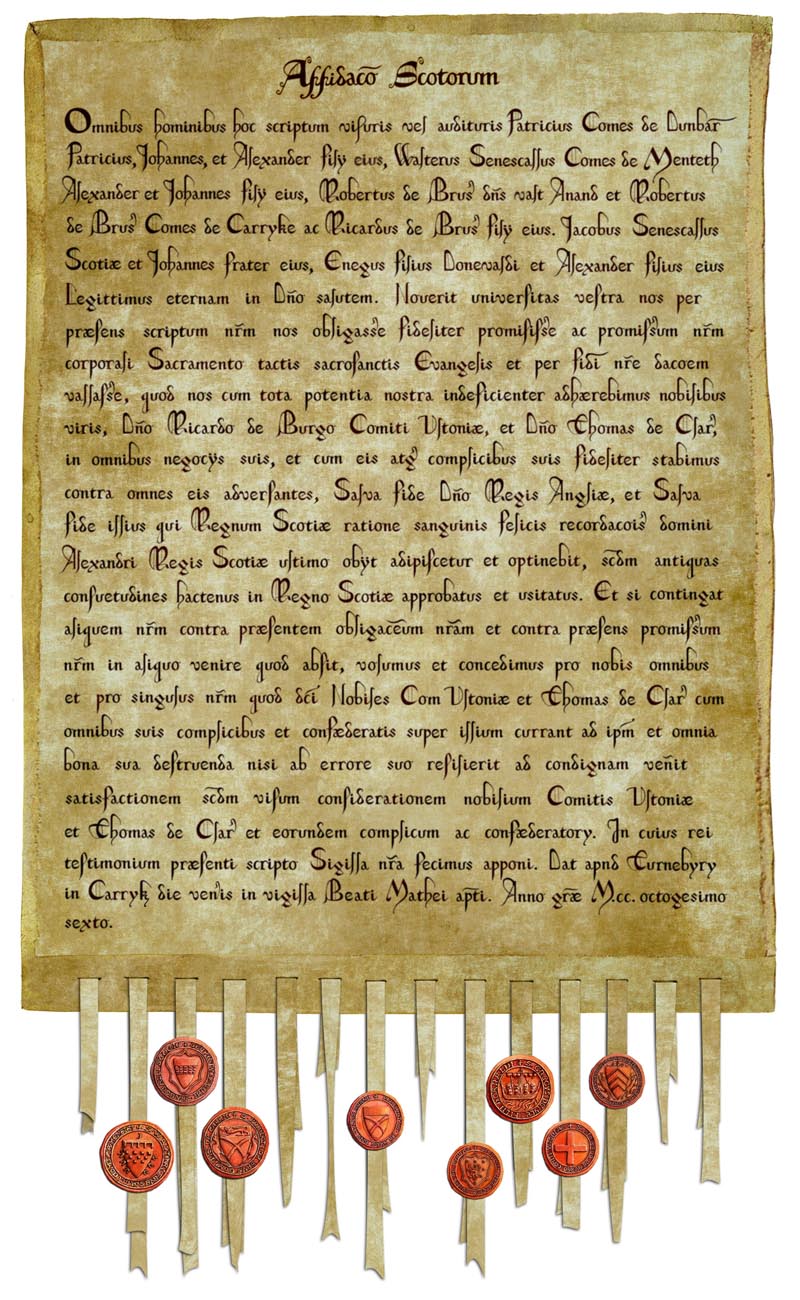 Affidacõ Scotorum
Omnibus hominibus hoc scriptum visuris vel audituris Patricius Comes de Dunbar
Patricius, Johannes, et Alexander filÿ eius, Walterus Senescallus Comes de Menteth
Alexander et Johannes filÿ eius, Robertus de Brus' dñs vall Anand et Robertus
de Brus' Comes de Carryke ac Ricardus de Brus' filÿ eius. Jacobus Senescallus
Scotiæ et Johannes frater eius, Enegus filius Donevaldi et Alexander filius eius
Legittimus eternam in Dño salutem. Noverit universitas vestra nos per
præsens scriptum nr̃m nos obligasse fideliter promisisse ac promissum nr̃m
corporali Sacramento tactis sacrosanctis Evangelis et per fidĩ nr̃e dacoem
vallasse, quod nos cum tota potentia nostra indeficienter adhærebimus nobilibus
viris, Dño Ricardo de Burgo Comiti Ultoniæ, et Dño Thomas de Clar',
in omnibus negocÿs suis, et cum eis atq' complicibus suis fideliter stabimus
contra omnes eis adversantes, Salva fide Dño Regis Angliæ, et Salva
fide illius qui Regnum Scotiæ ratione sanguinis felicis recordacois' domini
Alexandri Regis Scotiæ ultimo obÿt adipiscetur et optinebit, scd̃m antiquas
consuetudines hactenus in Regno Scotiæ approbatus et usitatus. Et si contingat
aliquem nr̃m contra præsentem obligacẽum nr̃am et contra præsens promissum
nr̃m in aliquo venire quod absit, volumus et concedimus pro nobis omnibus
et pro singulus nr̃m quod dc̃i Nobiles Com Ultoniæ et Thomas de Clar' cum
omnibus suis complicibus et confæderatis super illium currant ad ipm̃ et omnia
bona sua destruenda nisi ab errore suo resilierit ad condignam veñit
satisfactionem scd̃m visum considerationem nobilium Comitis Ultoniæ
et Thomas de Clar' et eorundem complicum ac confæderatory. In cuius rei
testimonium præsenti scripto Sigilla nr̃a fecimus apponi. Dat apnd Turnebyry
in Carryk die ven'is in vigilla Beati Mathei ap̃ti. Anno gr̃æ M.cc. octogesimo
sexto.